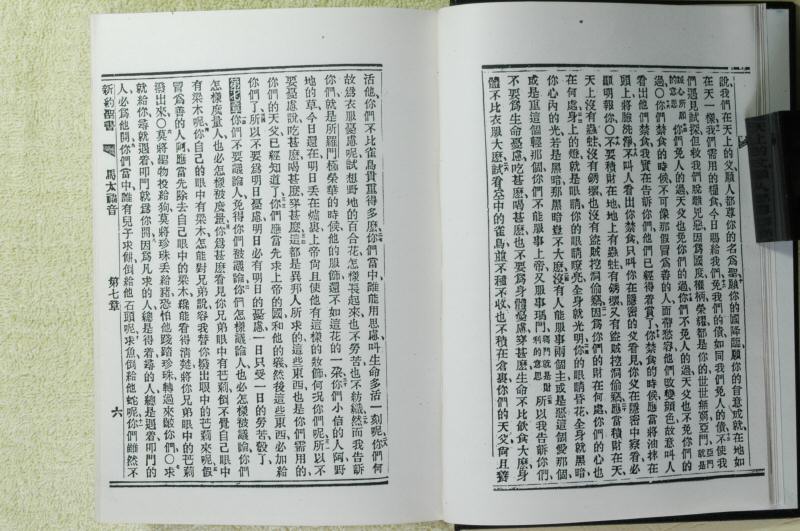 說我們在天上的父願人都尊你的名爲聖願你的國降臨願你的旨意成就在地如
在天一樣我們需用的糧食今日賜給我們免我們的債如同我們免人的債不使我
們遇見試探但救我們脫離兇惡因爲國度權柄榮耀都是你的世世無窮亞門
你們免人的過天父也免你們的過你們不免人的過天父也不免你們的
過○你們禁食的時候不可像那假冒爲善的人面帶愁容他們改變頭色故意叫人
看出他們禁食我實在告訴你們他們已經得着賞了你禁食的時候應當將油抹在
頭上將臉洗淨不叫人看出你禁食只叫你在隱密的父看見你父在隱密中察看必
顯明報你○不要積財在地地上有蟲蛀有銹壞又有盜賊挖洞偷竊應當積財在天
天上沒有蟲蛀沒有銹壞也沒有盜賊挖洞偷竊因爲你們的財在何處你們的心也
在何處身上的燈就是眼睛你的眼睛瞭亮全身就光明你的眼睛昏花全身就黑暗
你心內的光若是黑暗那黑暗豈不大麽沒有人能服事兩個主或是惡這個愛那個
或是重這個輕那個你們不能服事上帝又服事瑪門瑪門就是財利的意思所以我告訴你們
不要爲生命憂慮吃甚麽喝甚麽也不要爲身體憂慮穿甚麽生命不比飲食大麽身
體不比衣服大麽試看空中的雀鳥並不種不收也不積在倉裏你們的天父尙且養
活他你們不比雀鳥貴重得多麽你們當中誰能用思慮叫生命多活一刻呢你們何
故爲衣服憂慮呢試想野地的百合花怎樣長起來也不勞苦也不紡織然而我告訴
你們就是所羅門極榮華的時候他的服飾還不如這花的一朶你們小信的人阿野
地的草今日還在明日丟在爐裏上帝尙且使他有這樣的妝飾何况你們呢所以不
要憂慮說吃甚麽喝甚麽穿甚麽這都是異邦人所求的這些東西也是你們需用的
你們的天父已經知道了你們應當先求上帝的國和他的義然後這些東西必加給
你們了所以不要爲明日憂慮明日必有明日的憂慮一日只受一日的勞苦彀了
第七章你們不要議論人免得你們被議論你們怎樣議論人也必怎樣被議論你們
怎樣度量人也必怎樣被度量你爲甚麽看見你兄弟眼中有芒刺倒不覺自己眼中
有梁木呢你自己的眼中有梁木怎能對兄弟說容我替你撥出眼中的芒刺來呢假
冒爲善的人阿應當先除去自己眼中的梁木纔能看得清楚將你兄弟眼中的芒刺
撥出來○莫將聖物投給狗莫將珍珠丟給豬恐怕他踐踏珍珠轉過來齩你們○求
就給你尋就遇着叩門就爲你開因爲凡求的人總是得着尋的人總是遇着叩門的
人必爲他開你們當中誰有兒子求餅倒給他石頭呢求魚倒給他蛇呢你們雖然不
新約聖書 馬太福音 第七章 六